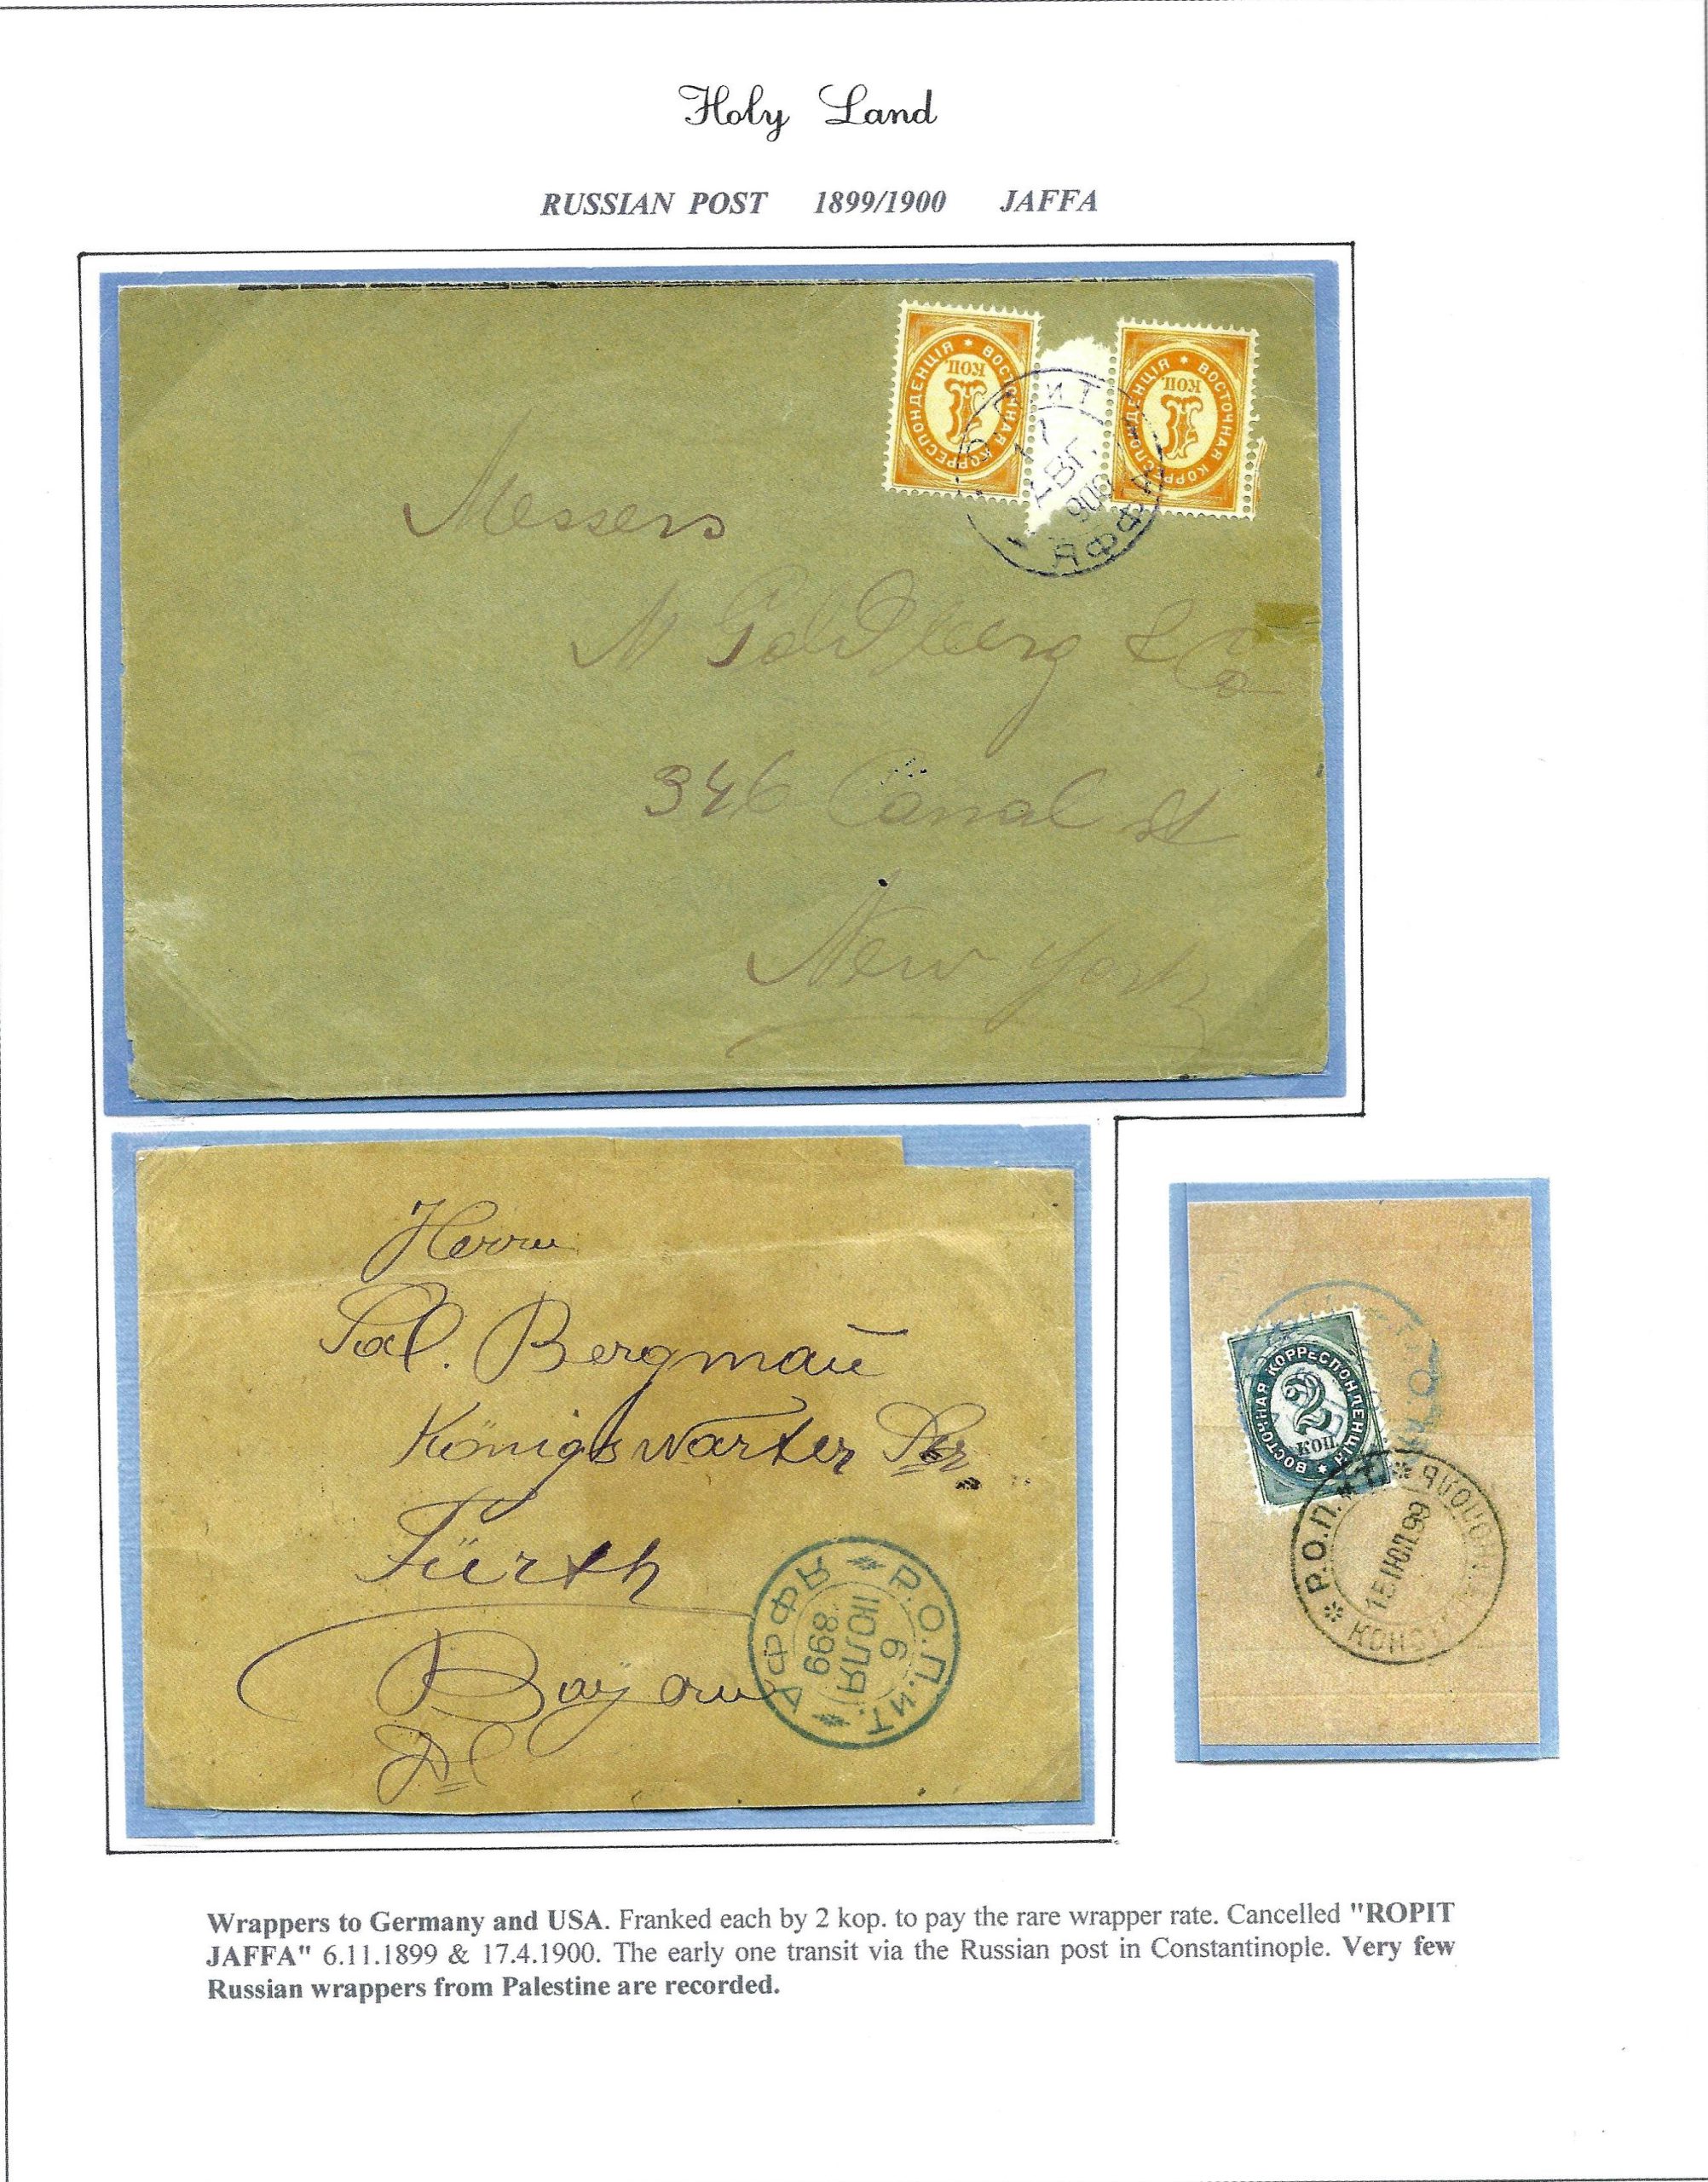 Holy Land
RUSSIAN POST 1899/1900 JAFFA
ВОСТОЧНАЯ КОРРЕСПОНДЕНЦІЯ
1
КОП.
ВОСТОЧНАЯ КОРРЕСПОНДЕНЦІЯ
1
КОП.
Messers
M Goldberg & Co
346 Canal st
New York
Herrn
Sal. Bergmañ
Königswarter Str
Fürth
Bayern
Р.О.П.иТ.
6
ІЮЛЯ
1899
ЯФФА
ВОСТОЧНАЯ КОРРЕСПОНДЕНЦІЯ
2
КОП.
Р.О.П.
15 ІЮЛ.99
Wrappers to Germany and USA. Franked each by 2 kop. to pay the rare wrapper rate. Cancelled "ROPIT
JAFFA" 6.11.1899 & 17.4.1900. The early one transit via the Russian post in Constantinople. Very few
Russian wrappers from Palestine are recorded.